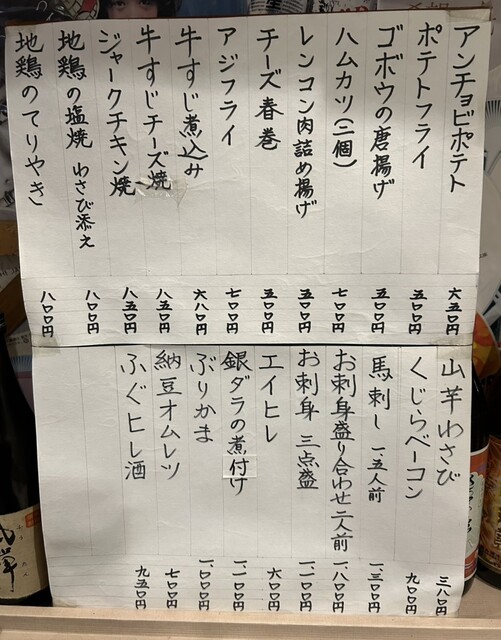 アンチョビポテト 六五〇円
ポテトフライ 五〇〇円
ゴボウの唐揚げ 五〇〇円
ハムカツ(二個) 七〇〇円
レンコン肉詰め揚げ 五〇〇円
チーズ春巻 五〇〇円
アジフライ 七〇〇円
牛すじ煮込み 六八〇円
牛すじチーズ焼 八五〇円
ジャークチキン焼 八五〇円
地鶏の塩焼 わさび添え 八〇〇円
地鶏のてりやき 八〇〇円
山芋わさび 三八〇円
くじらベーコン 九〇〇円
馬刺し 一、五人前 一、三〇〇円
お刺身盛り合わせ二人前 一、八〇〇円
お刺身 三点盛 一、二〇〇円
エイヒレ 六〇〇円
銀ダラの煮付け 一、二〇〇円
ぶりかま 一、〇〇〇円
納豆オムレツ 七〇〇円
ふぐヒレ酒 九五〇円